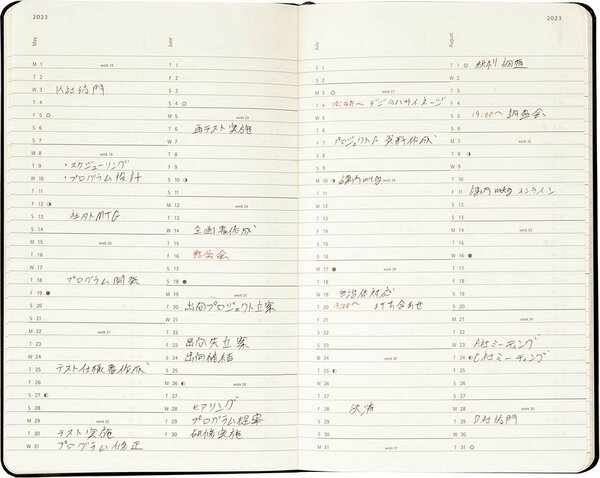 2023
May
M 1 week 18
T 2
W 3 K社訪問
T 4
F 5
S 6
S 7
M 8
T 9 ・スケジューリング
W 10 ・プログラム設計
T 11
F 12
S 13 MTG
S 14
M 15 week 20
T 16
W 17
T 18 プログラム開発
F 19
S 20
S 21
M 22 week 21
T 23
W 24
T 25 テスト仕様書作成
F 26
S 27
S 28
M 29 week 22
T 30 テスト実施
W 31 プログラム修正
June
T 1
F 2
S 3
S 4
M 5 week 23
T 6 再テスト実施
W 7
T 8
F 9
S 10
S 11
M 12 week 24
T 13
W 14 企画書作成
T 15
F 16 勉強会
S 17
S 18
M 19 week 25
T 20 出向プロジェクト立案
W 21
T 22
F 23 出向先立案
S 24 出向締結
S 25
M 26 week 26
T 27
W 28 ヒアリング
T 29 プログラム提案
F 30 研修実施
2023
July
S 1
S 2
M 3 week 27
T 4 10:45〜 デジタルサイネージ
W 5
T 6
F 7 プロジェクト 資料作成
S 8
S 9
M 10 課内mtg week 28
T 11
W 12
T 13
F 14
S 15
S 16
M 17 week 29
T 18
W 19 対応
T 20 13:00〜 打ち合わせ
F 21
S 22
S 23
M 24 week 30
T 25
W 26
T 27
F 28 決済
S 29
S 30
M 31 week 31
August
T 1
W 2
T 3
F 4
S 5 14:00〜
S 6
M 7
T 8
W 9
T 10
F 11 課内mtg オンライン
S 12
S 13
M 14 week 33
T 15
W 16
T 17
F 18
S 19
S 20
M 21
T 22
W 23 A社ミーティング
T 24 C社ミーティング
F 25
S 26
S 27
M 28 week 35
T 29 D社訪問
W 30
T 31